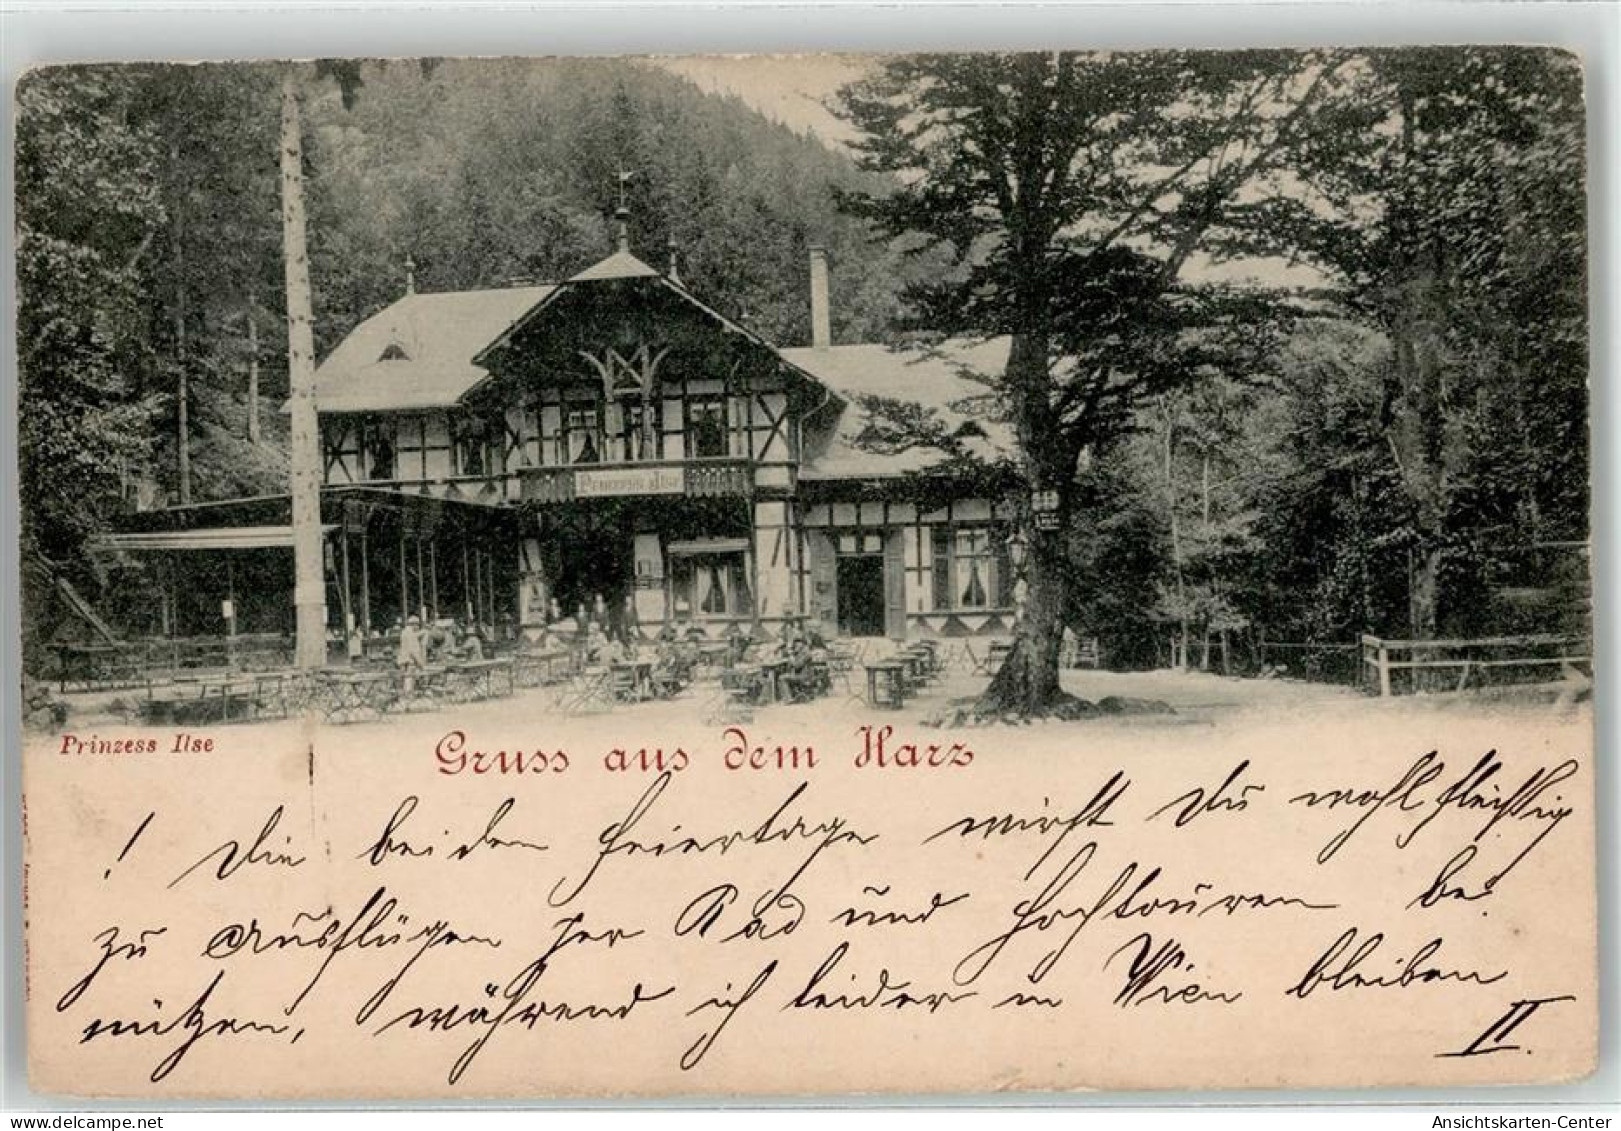 Prinzess Ilse
Prinzess Ilse
Gruss aus dem Harz
! Die beiden Feiertage wirst Du wohl fleißig
zu Ausflügen per Rad und Hochtouren be
nützen, während ich leider in Wien bleiben
II.
Ansichtskarten-Center